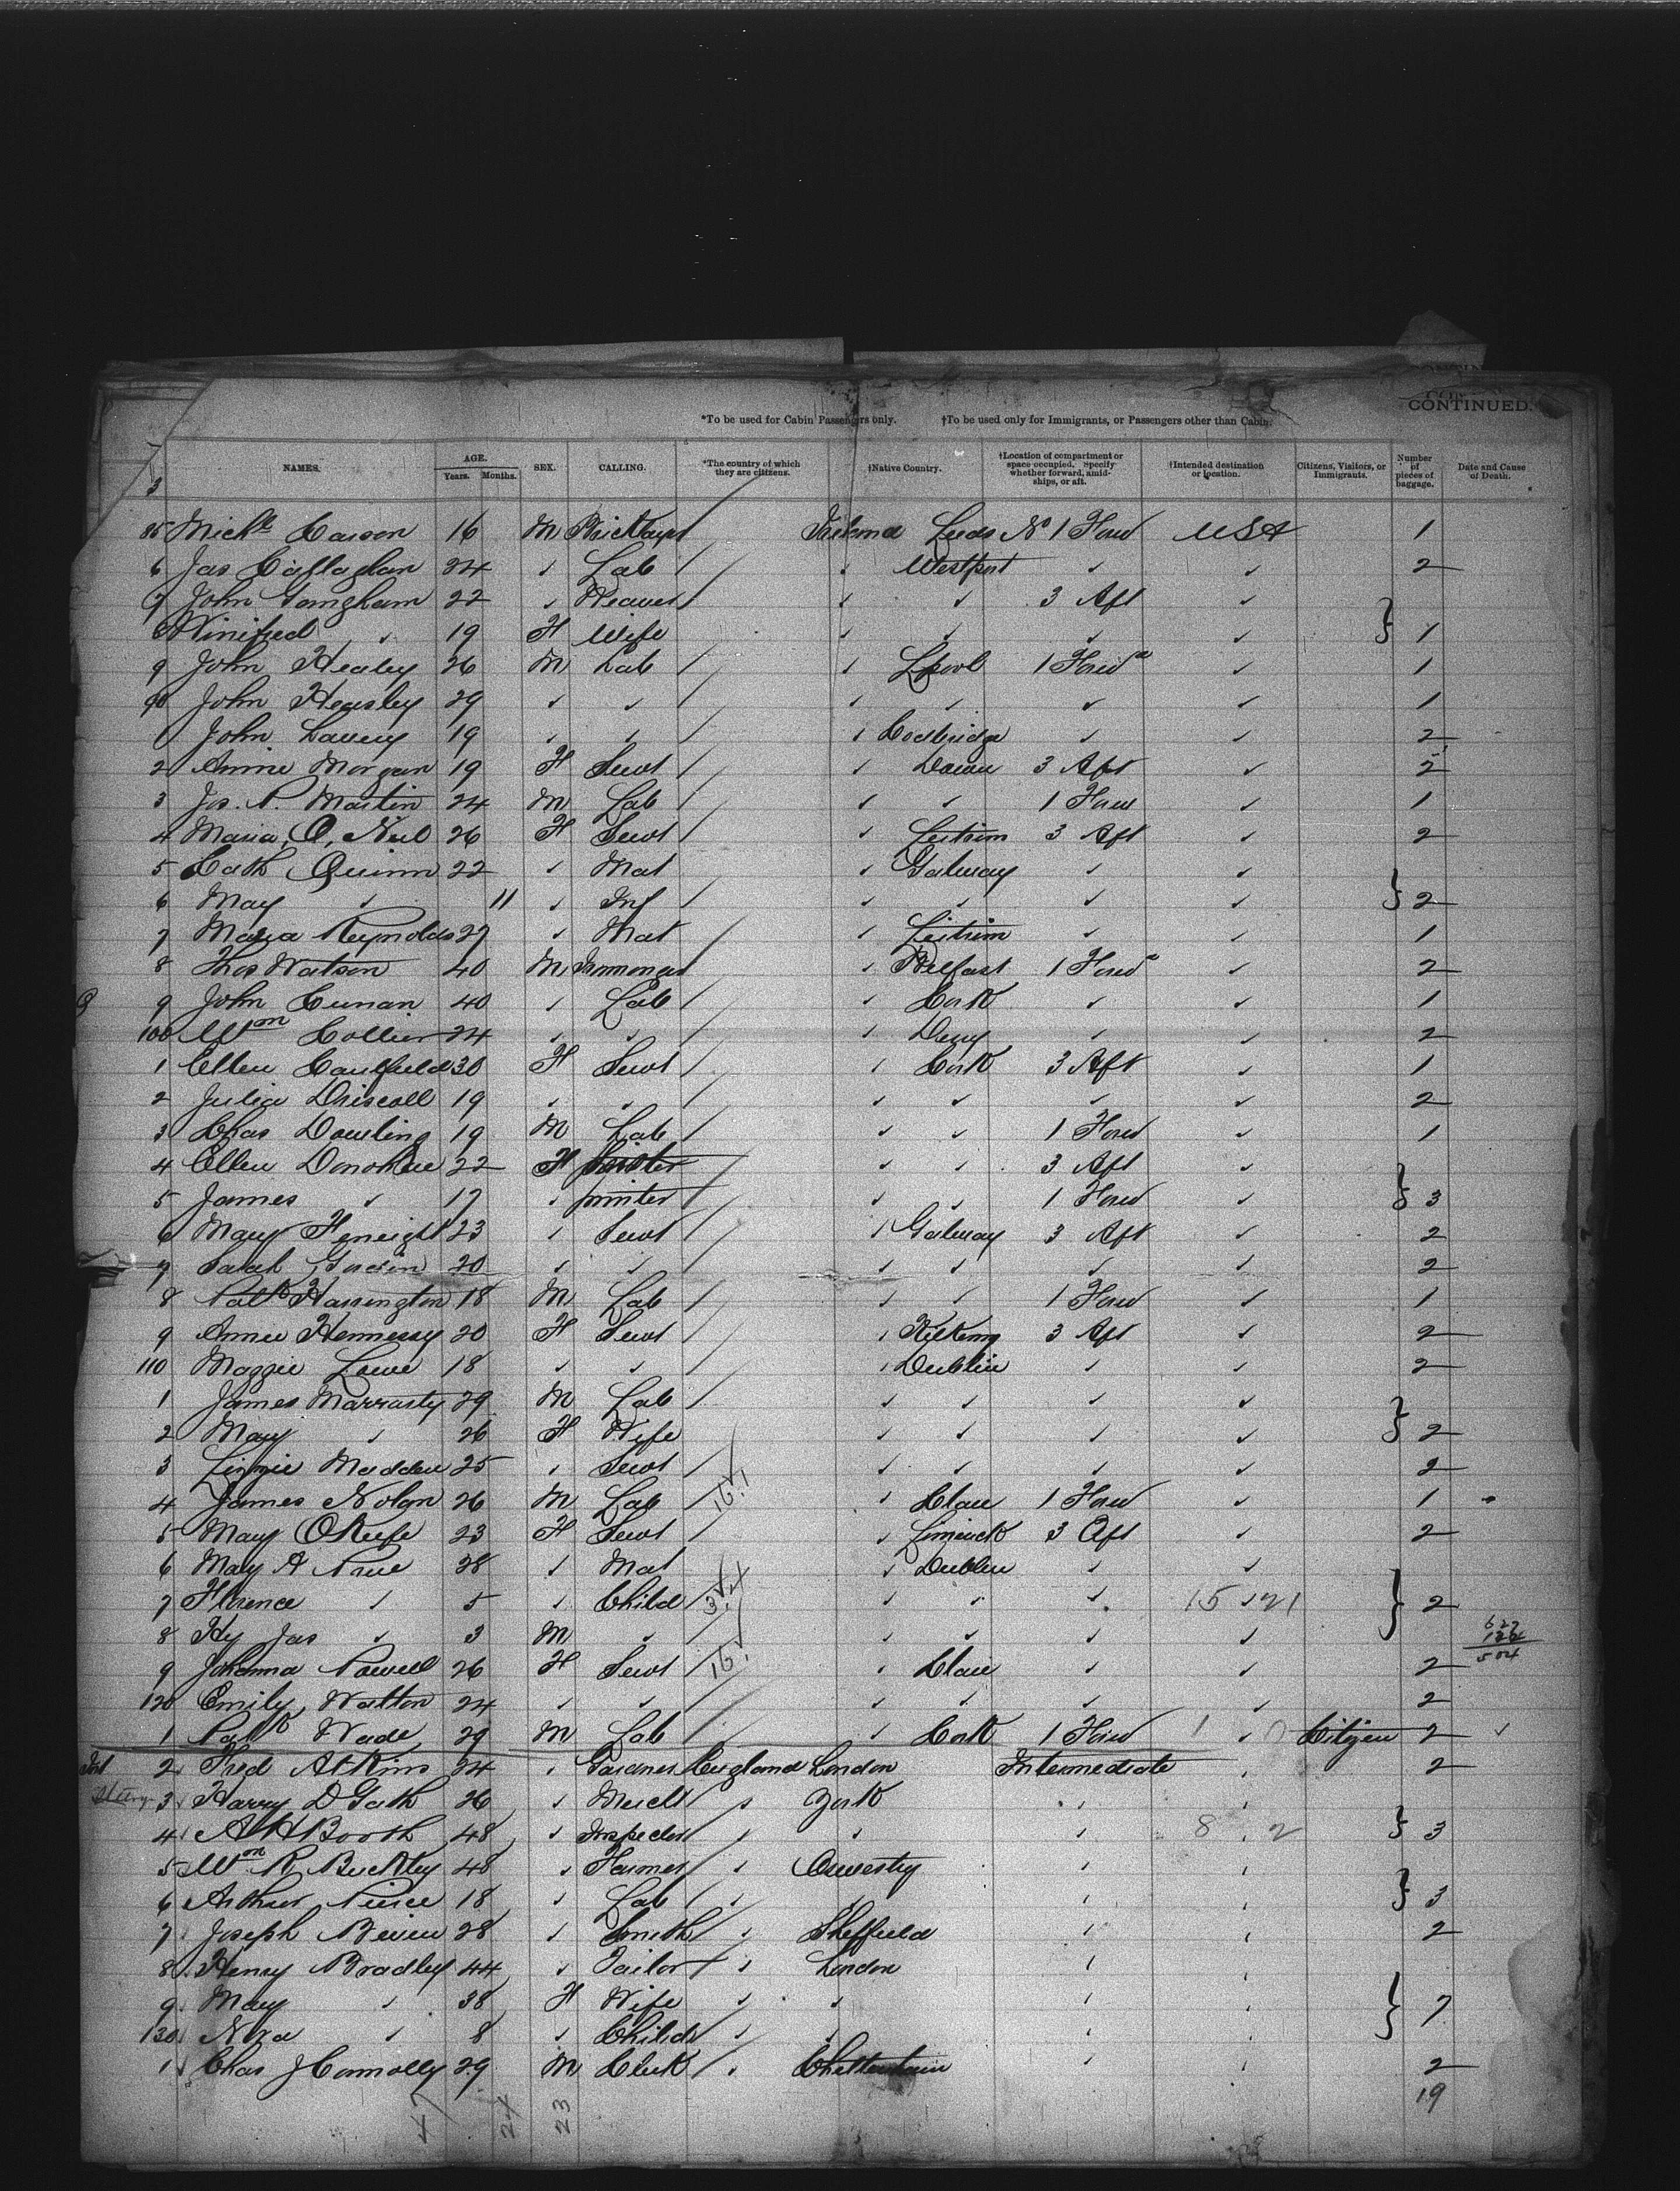 CONTINUED.
*To be used for Cabin Passengers only. †To be used only for Immigrants, or Passengers other than Cabin.
NAMES. AGE. Years. Months. SEX. CALLING. *The country of which they are citizens. †Native Country. †Location of compartment or space occupied. Specify whether forward, amid-ships, or aft. †Intended destination or location. Citizens, Visitors, or Immigrants. Number of pieces of baggage. Date and Cause of Death.
85 Michl Carson 16 M Bricklayer Ireland Leeds No 1 Forwd USA 1
6 Jas Callaghan 24 " Lab " Westport " " 2
7 John Gangham 22 " Weaver " " 3 Aft "
8 Winifred " 19 F Wife " " " " } 1
9 John Healey 26 M Lab " Lpool 1 Forwd " 1
90 John Heasley 29 " " " " " " 1
1 John Lavery 19 " " " " " 2
2 Annie Morgan 19 F Servt " Down 3 Aft " 2
3 Js. P. Martin 24 M Lab " " 1 Forw " 1
4 Maria O'Neil 26 F Servt " Leitrim 3 Aft " 2
5 Cath Quinn 22 " Mat " Galway " "
6 May " 11 " Inf " " " " } 2
7 Maria Reynolds 27 " Mat " Leitrim " " 1
8 Thos Watson 40 M Ironmonger " Belfast 1 Forwd " 2
9 John Cunan 40 " Lab " Cork " " 1
100 Wm Collier 24 " " " Derry " " 2
1 Ellen Caulfield 30 F Servt " Cork 3 Aft " 1
2 Julia Driscoll 19 " " " " " " 2
3 Chas Dowling 19 M Lab " " 1 Forwd " 1
4 Ellen Donohue 22 F " " 3 Aft "
5 James " 17 " printer " " 1 Forwd " } 3
6 Mary 23 " Servt " Galway 3 Aft " 2
7 Sarah 20 " " " " " " 2
8 Patk Harrington 18 M Lab " " 1 Forwd " 1
9 Annie Hennessy 20 F Servt " Kilkenny 3 Aft " 2
110 Maggie Lowe 18 " " " Dublin " " 2
1 James Marrasty 29 M Lab " " " "
2 Mary " 26 F Wife " " " " } 2
3 Lizzie Madden 25 " Servt " " " " 2
4 James Nolan 26 M Lab 16 " Clare 1 Forwd " 1
5 Mary OKeefe 23 F Servt " Limerick 3 Aft " 2
6 Mary A 28 " Mat " Dublin " "
7 Florence " 5 " Child " " " 15 " 21 } 2
8 Hy Jas " 3 M " " " " " 627 504
9 Johanna Powell 26 F Servt 16 " Clare " " 2
120 Emily Walton 24 " " " " " " 2
1 Patk Wade 29 M Lab " Cork 1 Forwd 1 " Citizen 2
2 Fred Atkins 24 " Gardner England London Intermediate " 2
3 Harry D Gath 26 " Mercht " York " "
4 A H Booth 48 " Inspector " " " 8 " 2 } 3
5 Wm R Buckley 48 " Farmer " Oswestry " "
6 Arthur Pierce 18 " Lab " " " " } 3
7 Joseph 28 " Smith " Sheffield " " 2
8 Henry Bradley 44 " Tailor " London " "
9 May " 38 F Wife " " " " } 7
130 Nora " 8 " Child " " " "
1 Chas J Connolly 29 M Clerk " Cheltenham " " 2
47 24 23 19